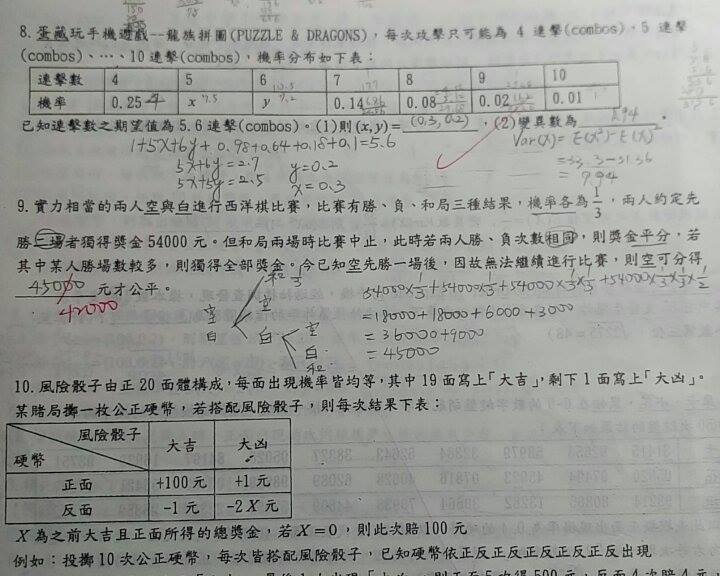 8. 蛋藏玩手機遊戲--龍族拼圖(PUZZLE & DRAGONS)，每次攻擊只可能為 4 連擊(combos)、5 連擊
(combos)、…、10 連擊(combos)，機率分布如下表：
連擊數 4 5 6 7 8 9 10
機率 0.25 x y 0.14 0.08 0.02 0.01
已知連擊數之期望值為 5.6 連擊(combos)。(1)則(x,y)= (0.3, 0.2) ，(2)變異數為 。
1+5x+6y+0.98+0.64+0.18+0.1=5.6
Var(X)=E(X²)-E(X)²
5x+6y=2.7 y=0.2
5x+5y=2.5 x=0.3
9. 實力相當的兩人空與白進行西洋棋比賽，比賽有勝、負、和局三種結果，機率各為 1/3，兩人約定先
勝二場者獨得獎金 54000 元。但和局兩場時比賽中止，此時若兩人勝、負次數相同，則獎金平分，若
其中某人勝場數較多，則獨得全部獎金。今已知空先勝一場後，因故無法繼續進行比賽，則空可分得
45000 元才公平。
42000
54000×1/3+54000×1/3+54000×1/3×1/3+54000×1/3×1/3×1/2
=18000+18000+6000+3000
=36000+9000
=45000
和 1/3
空
空
白
白
空
白
和
10. 風險骰子由正 20 面體構成，每面出現機率皆均等，其中 19 面寫上「大吉」，剩下 1 面寫上「大凶」。
某賭局擲一枚公正硬幣，若搭配風險骰子，則每次結果下表：
風險骰子 大吉 大凶
硬幣
正面 +100 元 +1 元
反面 -1 元 -2X 元
X 為之前大吉且正面所得的總獎金，若 X=0，則此次賠 100 元
例如：投擲 10 次公正硬幣，每次皆搭配風險骰子，已知硬幣依正反正反正反正反正反出現